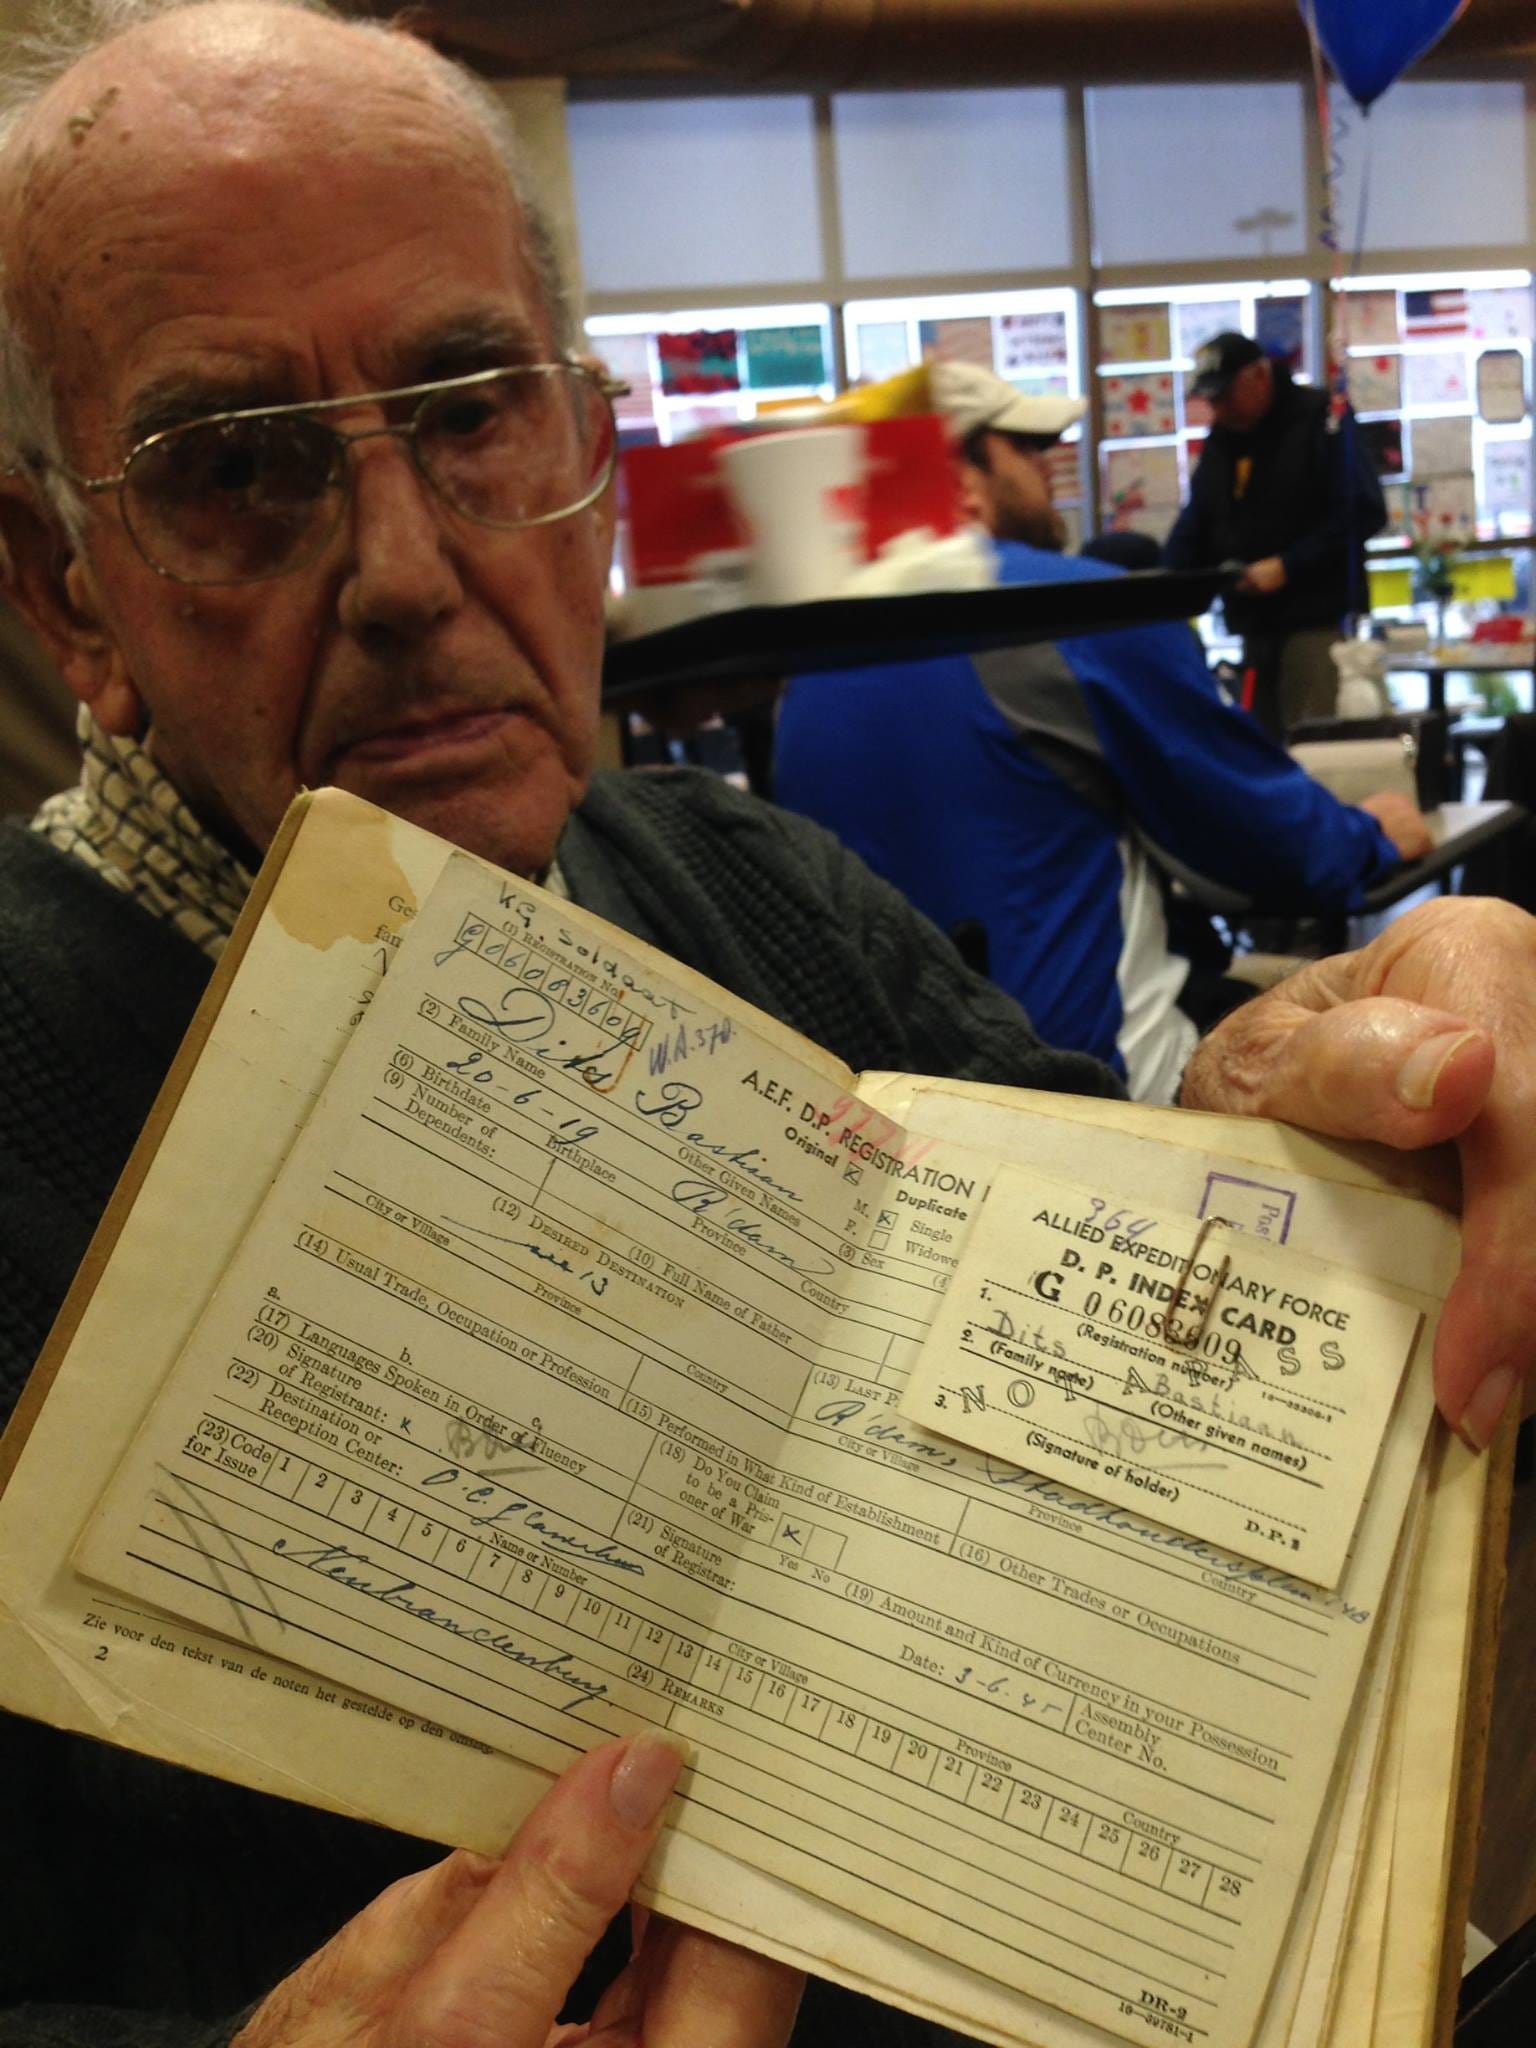 Ges
fam
Kg. Soldaat
(1) REGISTRATION NO.
G06083609
W.A. 370.
A.E.F. D.P. REGISTRATION
Original Duplicate
Dits Bastian
(2) Family Name Other Given Names (3) Sex
M. x Single
F. Widowe
20-6-19 R'dam
(6) Birthdate Birthplace Province Country
(9) Number of Dependents: (10) Full Name of Father
(12) DESIRED DESTINATION (13) LAST P
R'dam, Stadhoudersplein 148
City or Village Province Country City or Village Province Country
(14) Usual Trade, Occupation or Profession (15) Performed in What Kind of Establishment (16) Other Trades or Occupations
a. b. c.
(17) Languages Spoken in Order of Fluency (18) Do You Claim to be a Prisoner of War x Yes No (19) Amount and Kind of Currency in your Possession
(20) Signature of Registrant: x (21) Signature of Registrar: Date: 3-6-45 Assembly Center No.
(22) Destination or Reception Center:
Name or Number City or Village Province Country
(23) Code for Issue 1 2 3 4 5 6 7 8 9 10 11 12 13 14 15 16 17 18 19 20 21 22 23 24 25 26 27 28
(24) REMARKS
Neubrandenburg.
DR-2
16—39781-1
Zie voor den tekst van de noten het gestelde op den omslag.
2
Pos
364
ALLIED EXPEDITIONARY FORCE
D. P. INDEX CARD
G 06083609
1. (Registration number)
2. Dits Bastiaan
(Family name) (Other given names)
NOT A PASS
3.
(Signature of holder)
D.P. 1